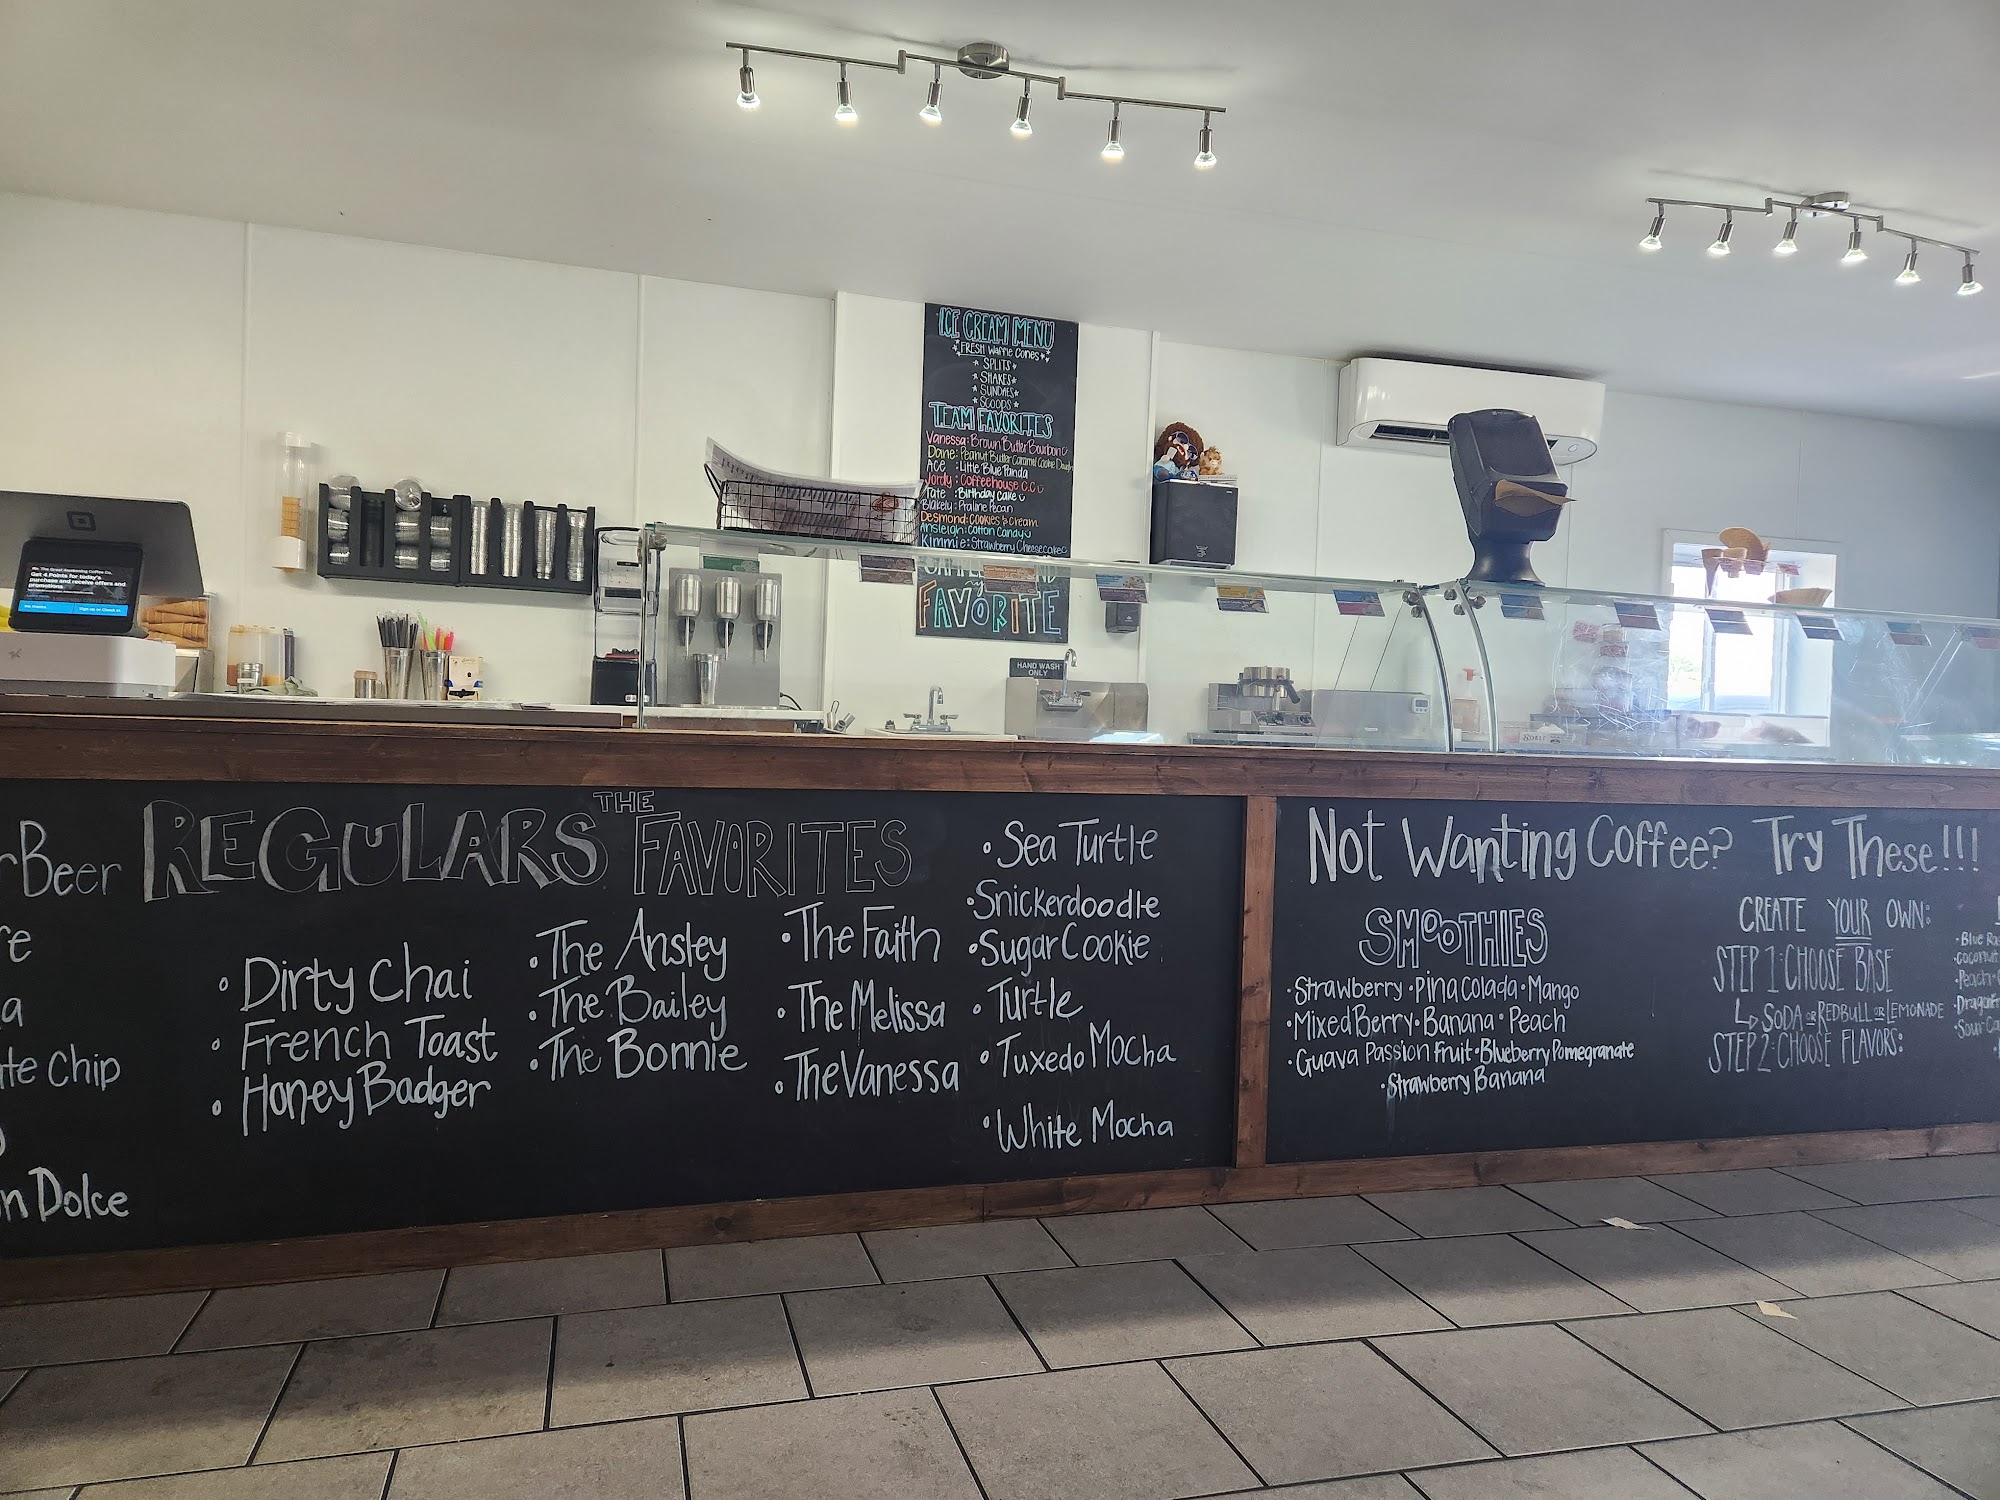 ICE CREAM MENU
FRESH Waffle Cones
SPLITS
SHAKES
SUNDAES
SCOOPS
TEAM FAVORITES
Vanessa: Brown Butter Bourbon
Dane: Peanut Butter Caramel Cookie Dough
ACE: Little Blue Panda
Jordy: Coffeehouse C.C
Tate: Birthday Cake
Blakely: Praline Pecan
Desmond: COOKIES & Cream
Ansleigh: Cotton Candy
Kimmie: Strawberry Cheesecake
FAVORITE
HAND WASH
ONLY
Get 4 Points for today's
purchase and receive offers and
promotions.
Beer
te Chip
n Dolce
REGULARS
• Dirty Chai
• French Toast
• Honey Badger
THE
FAVORITES
• The Ansley
• The Bailey
• The Bonnie
• The Faith
• The Melissa
• The Vanessa
• Sea Turtle
• Snickerdoodle
• Sugar Cookie
• Turtle
• Tuxedo Mocha
• White Mocha
Not Wanting Coffee? Try These!!!
SMOOTHIES
• Strawberry • Pina Colada • Mango
• Mixed Berry • Banana • Peach
• Guava Passion Fruit • Blueberry Pomegranate
• Strawberry Banana
CREATE YOUR OWN:
STEP 1: CHOOSE BASE
SODA OR REDBULL OR LEMONADE
STEP 2: CHOOSE FLAVORS:
• Blue Ra
• Coconut
• Peach
• DragonFr
• Sour Ca